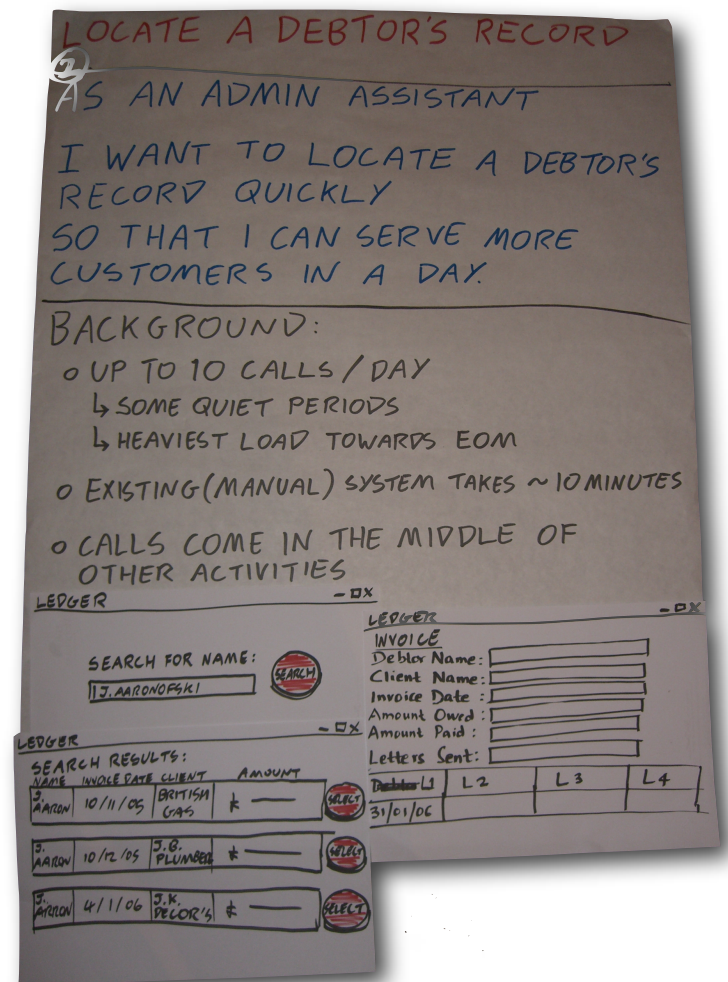 LOCATE A DEBTOR'S RECORD
2
AS AN ADMIN ASSISTANT
I WANT TO LOCATE A DEBTOR'S
RECORD QUICKLY
SO THAT I CAN SERVE MORE
CUSTOMERS IN A DAY.
BACKGROUND:
o UP TO 10 CALLS / DAY
↳ SOME QUIET PERIODS
↳ HEAVIEST LOAD TOWARDS EOM
o EXISTING (MANUAL) SYSTEM TAKES ~ 10 MINUTES
o CALLS COME IN THE MIDDLE OF
OTHER ACTIVITIES
LEDGER - □ X
SEARCH FOR NAME:
J. AARONOFSKI SEARCH
LEDGER - □ X
SEARCH RESULTS:
NAME INVOICE DATE CLIENT AMOUNT
J. AARON 10/11/05 BRITISH GAS £ — SELECT
J. AARON 10/12/05 J.B. PLUMBER £ — SELECT
J. ARRON 4/1/06 J.K. DECOR'S £ — SELECT
LEDGER - □ X
INVOICE
Debtor Name:
Client Name:
Invoice Date :
Amount Owed :
Amount Paid :
Letters Sent:
L1 L2 L3 L4
31/01/06